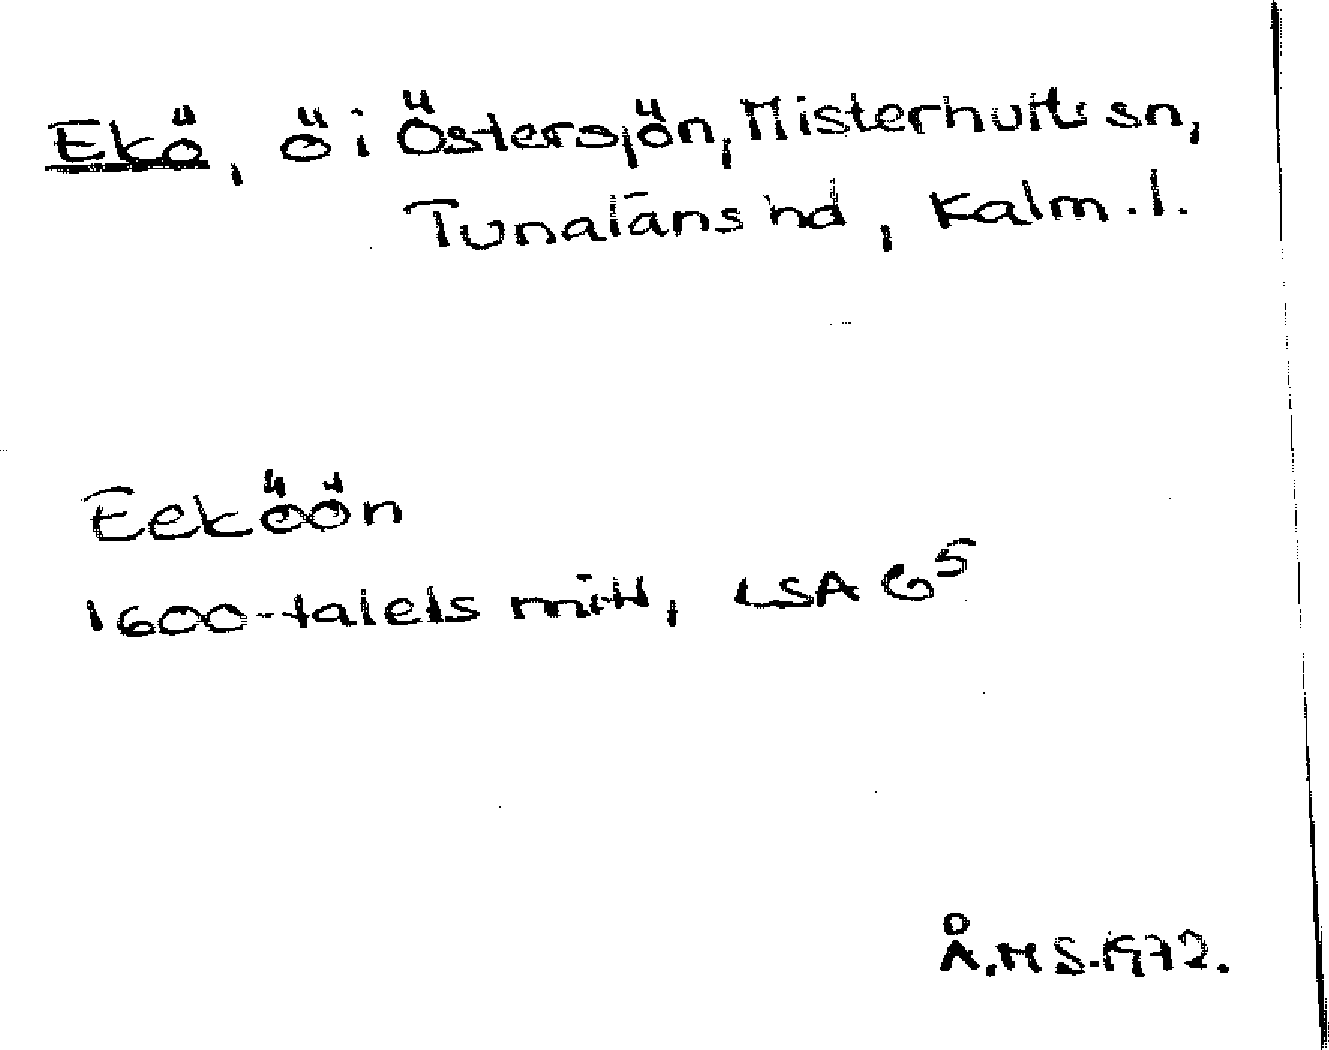 Ekö, ö i Östersjön, Misterhults sn,
Tunaläns hd, Kalm. l.
Eeköön
1600-talets mitt, LSA G5
Å.M S. 1972.